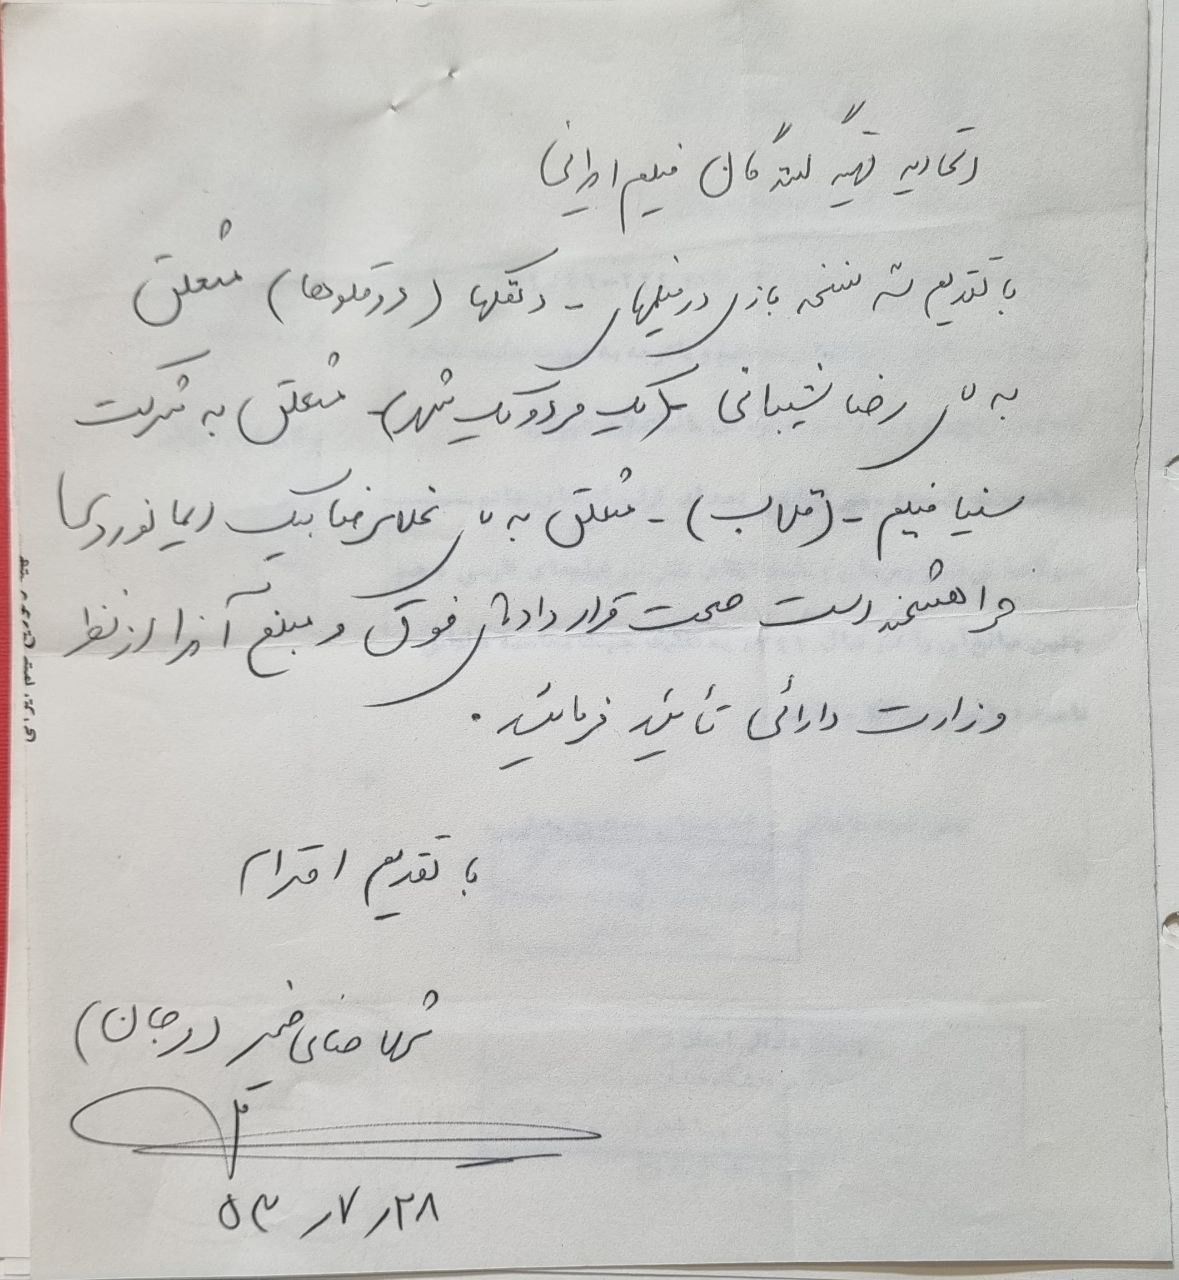 اتحادیه تهیه کنندگان فیلم ایرانی
با تقدیم سه نسخه بازی در فیلمهای - دلقکها (دوقلوها) متعلق
به آقای رضا شیبانی - (یک مرد و یک شهر) - متعلق به شرکت
سینا فیلم - (قلاب) - متعلق به آقای غلامرضا بیک ایمانوردی
خواهشمند است صحت قراردادهای فوق و مبلغ آنرا از نظر
وزارت دارائی تأئید فرمائید.
با تقدیم احترام
شهلا صافی ضمیر (مرجان)
۲۸ر ۷ر ۵۳